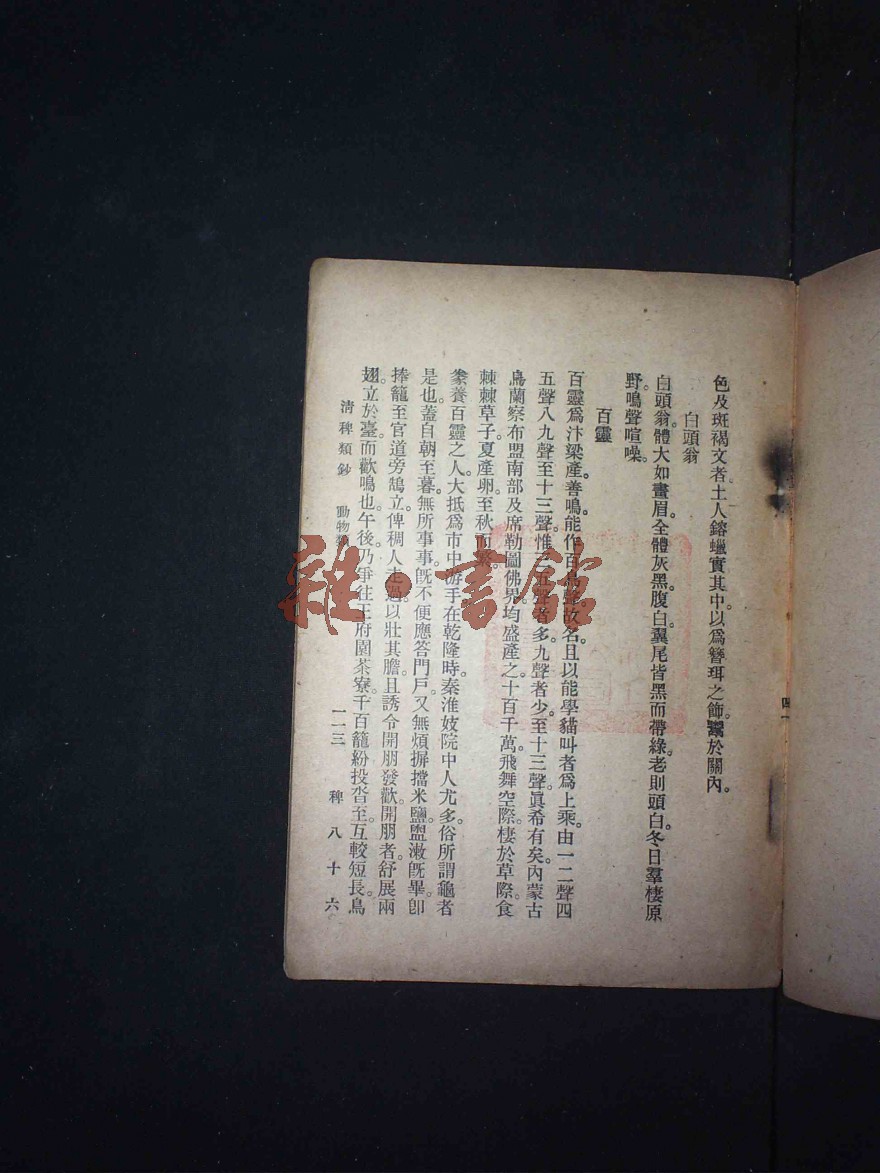 色及斑褐文者。土人鎔蠟實其中。以爲簪珥之飾。鬻於關內。
白頭翁
白頭翁。體大如畫眉。全體灰黑。腹白。翼尾皆黑而帶綠。老則頭白。冬日羣棲原
野。鳴聲喧噪。
百靈
百靈爲汴梁產。善鳴。能作百鳥聲。故名。且以能學貓叫者爲上乘。由一二聲四
五聲八九聲至十三聲。惟三五聲者多。九聲者少。至十三聲。眞希有矣。內蒙古
烏蘭察布盟南部及席勒圖佛界。均盛產之。十百千萬。飛舞空際。棲於草際。食
棘棘草子。夏產卵。至秋而繁。
豢養百靈之人。大抵爲市中游手。在乾隆時。秦淮妓院中人尤多。俗所謂龜者
是也。蓋自朝至暮。無所事事。旣不便應答門戶。又無煩摒擋米鹽。盥漱旣畢。卽
捧籠至官道旁鵠立。俾稠人走過。以壯其膽。且誘令開朋發歡。開朋者。舒展兩
翅。立於臺。而歡鳴也。午後。乃爭往王府園茶寮。千百籠紛投沓至。互較短長。鳥
清稗類鈔 動物類 一一三 稗八十六
四一
雜·書館